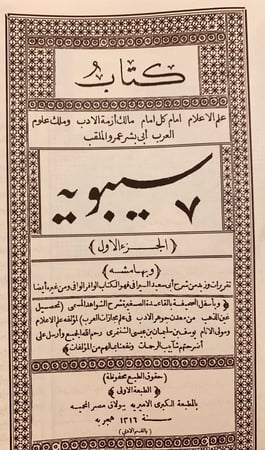 كتاب
علم الاعلام امام كل امام مالك أزمة الادب وملك علوم
العرب أبي بشر عمرو الملقب
سيبويه
٧
(الجزء الاول)
(وبهامشه)
تقريرات وزبد من شرح أبي سعيد السيرافي فهو الكتاب الوافر الوافي ومن غيره أيضا
وبأسفل الصحيفة بالقاعدة الصغيرة شرح الشواهد المسمى (تحصيل
عين الذهب من معدن جوهر الادب في علم مجازات العرب) لمؤلفه علم الاعلام
ومولى الانام يوسف بن سليمان بن عيسى الشنتمري رحم الله الجميع وأرسل على
أضرحتهم شآبيب الرحمات ونفعنا بما لهم من المؤلفات
(حقوق الطبع محفوظة)
(الطبعة الاولى)
بالمطبعة الكبرى الاميرية ببولاق مصر المحمية
سنة ١٣١٦ هجرية
(بالقسم الادبي)